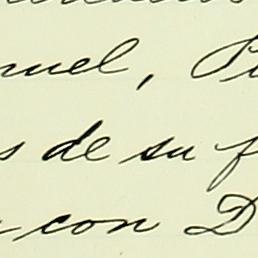 nuel, Pi
s de su f
con D